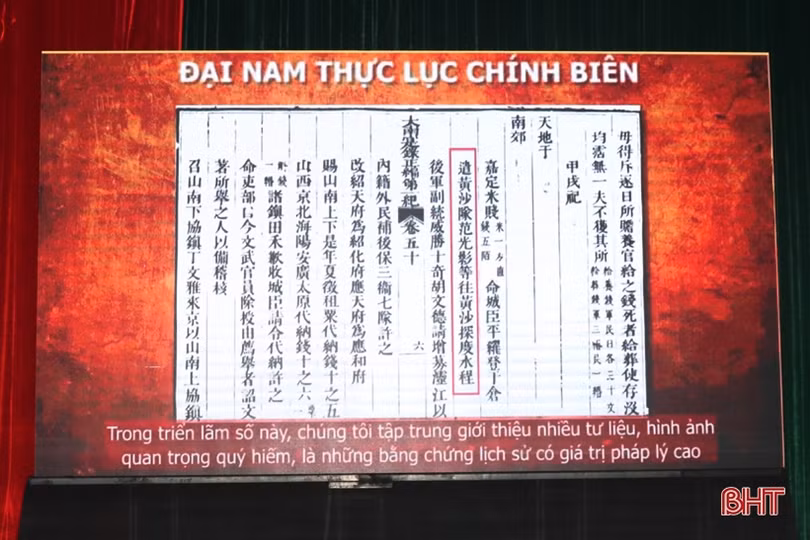 ĐẠI NAM THỰC LỤC CHÍNH BIÊN
毋得斥逐日所贍養官給之錢死者給葬使存沒
均霑無一夫不獲其所
甲戌祀
天地于
南郊
嘉定米賤
命城臣平糶登十倉
遣黃沙隊范光影等往黃沙探度水程
後軍副統威勝十奇胡文德請增募瀝江以
卷五十
六
內籍外民補後保三衞七隊許之
改紹天府爲紹化府應天府爲應和府
賜山南上下是年夏徵租粟代納錢十之五
山西京北海陽安廣太原代納錢十之六
諸鎮田禾歉收城臣請令代納許之
命吏部㠯今文武官員除授由薦舉者詔文
著所舉之人以備稽核
召山南下協鎮丁文雅來京以山南上協鎮
Trong triển lãm số này, chúng tôi tập trung giới thiệu nhiều tư liệu, hình ảnh
quan trọng quý hiếm, là những bằng chứng lịch sử có giá trị pháp lý cao
BHT